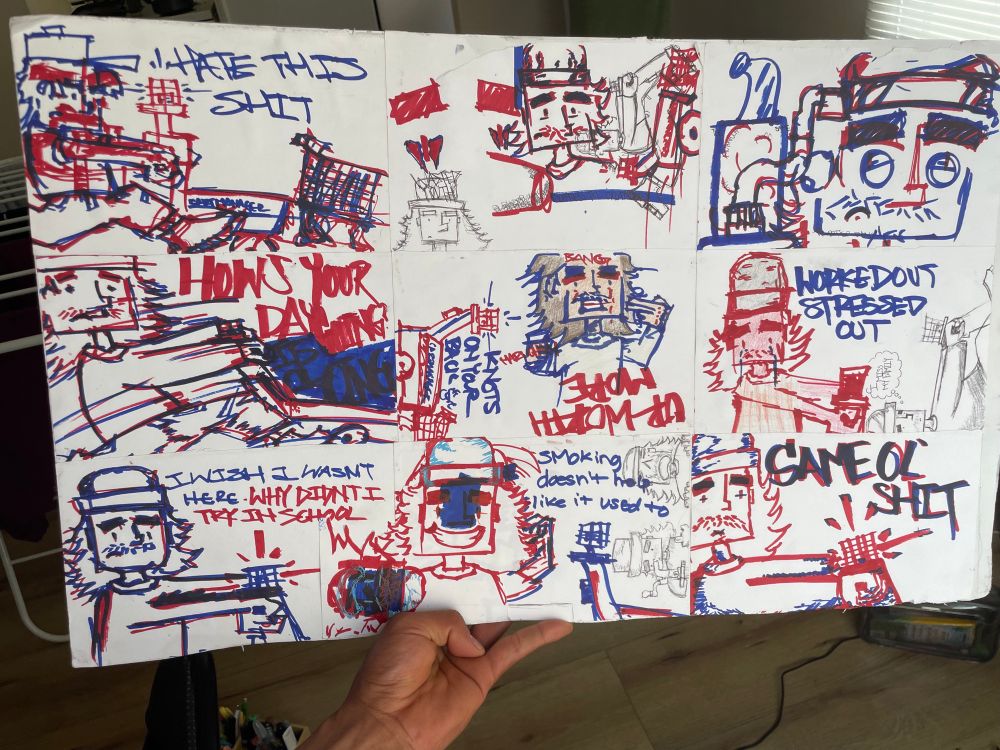 I HATE THIS
SHIT
HOWS YOUR
DAY GOING
BANG
KNOTS
ON YOUR
BACK
MORE
UR WORTH
WORKED OUT
STRESSED
OUT
I WISH I WASNT
HERE. WHY DIDNT I
TRY IN SCHOOL
SMOKING
doesn't help
like it used to
SAME OL'
SHIT